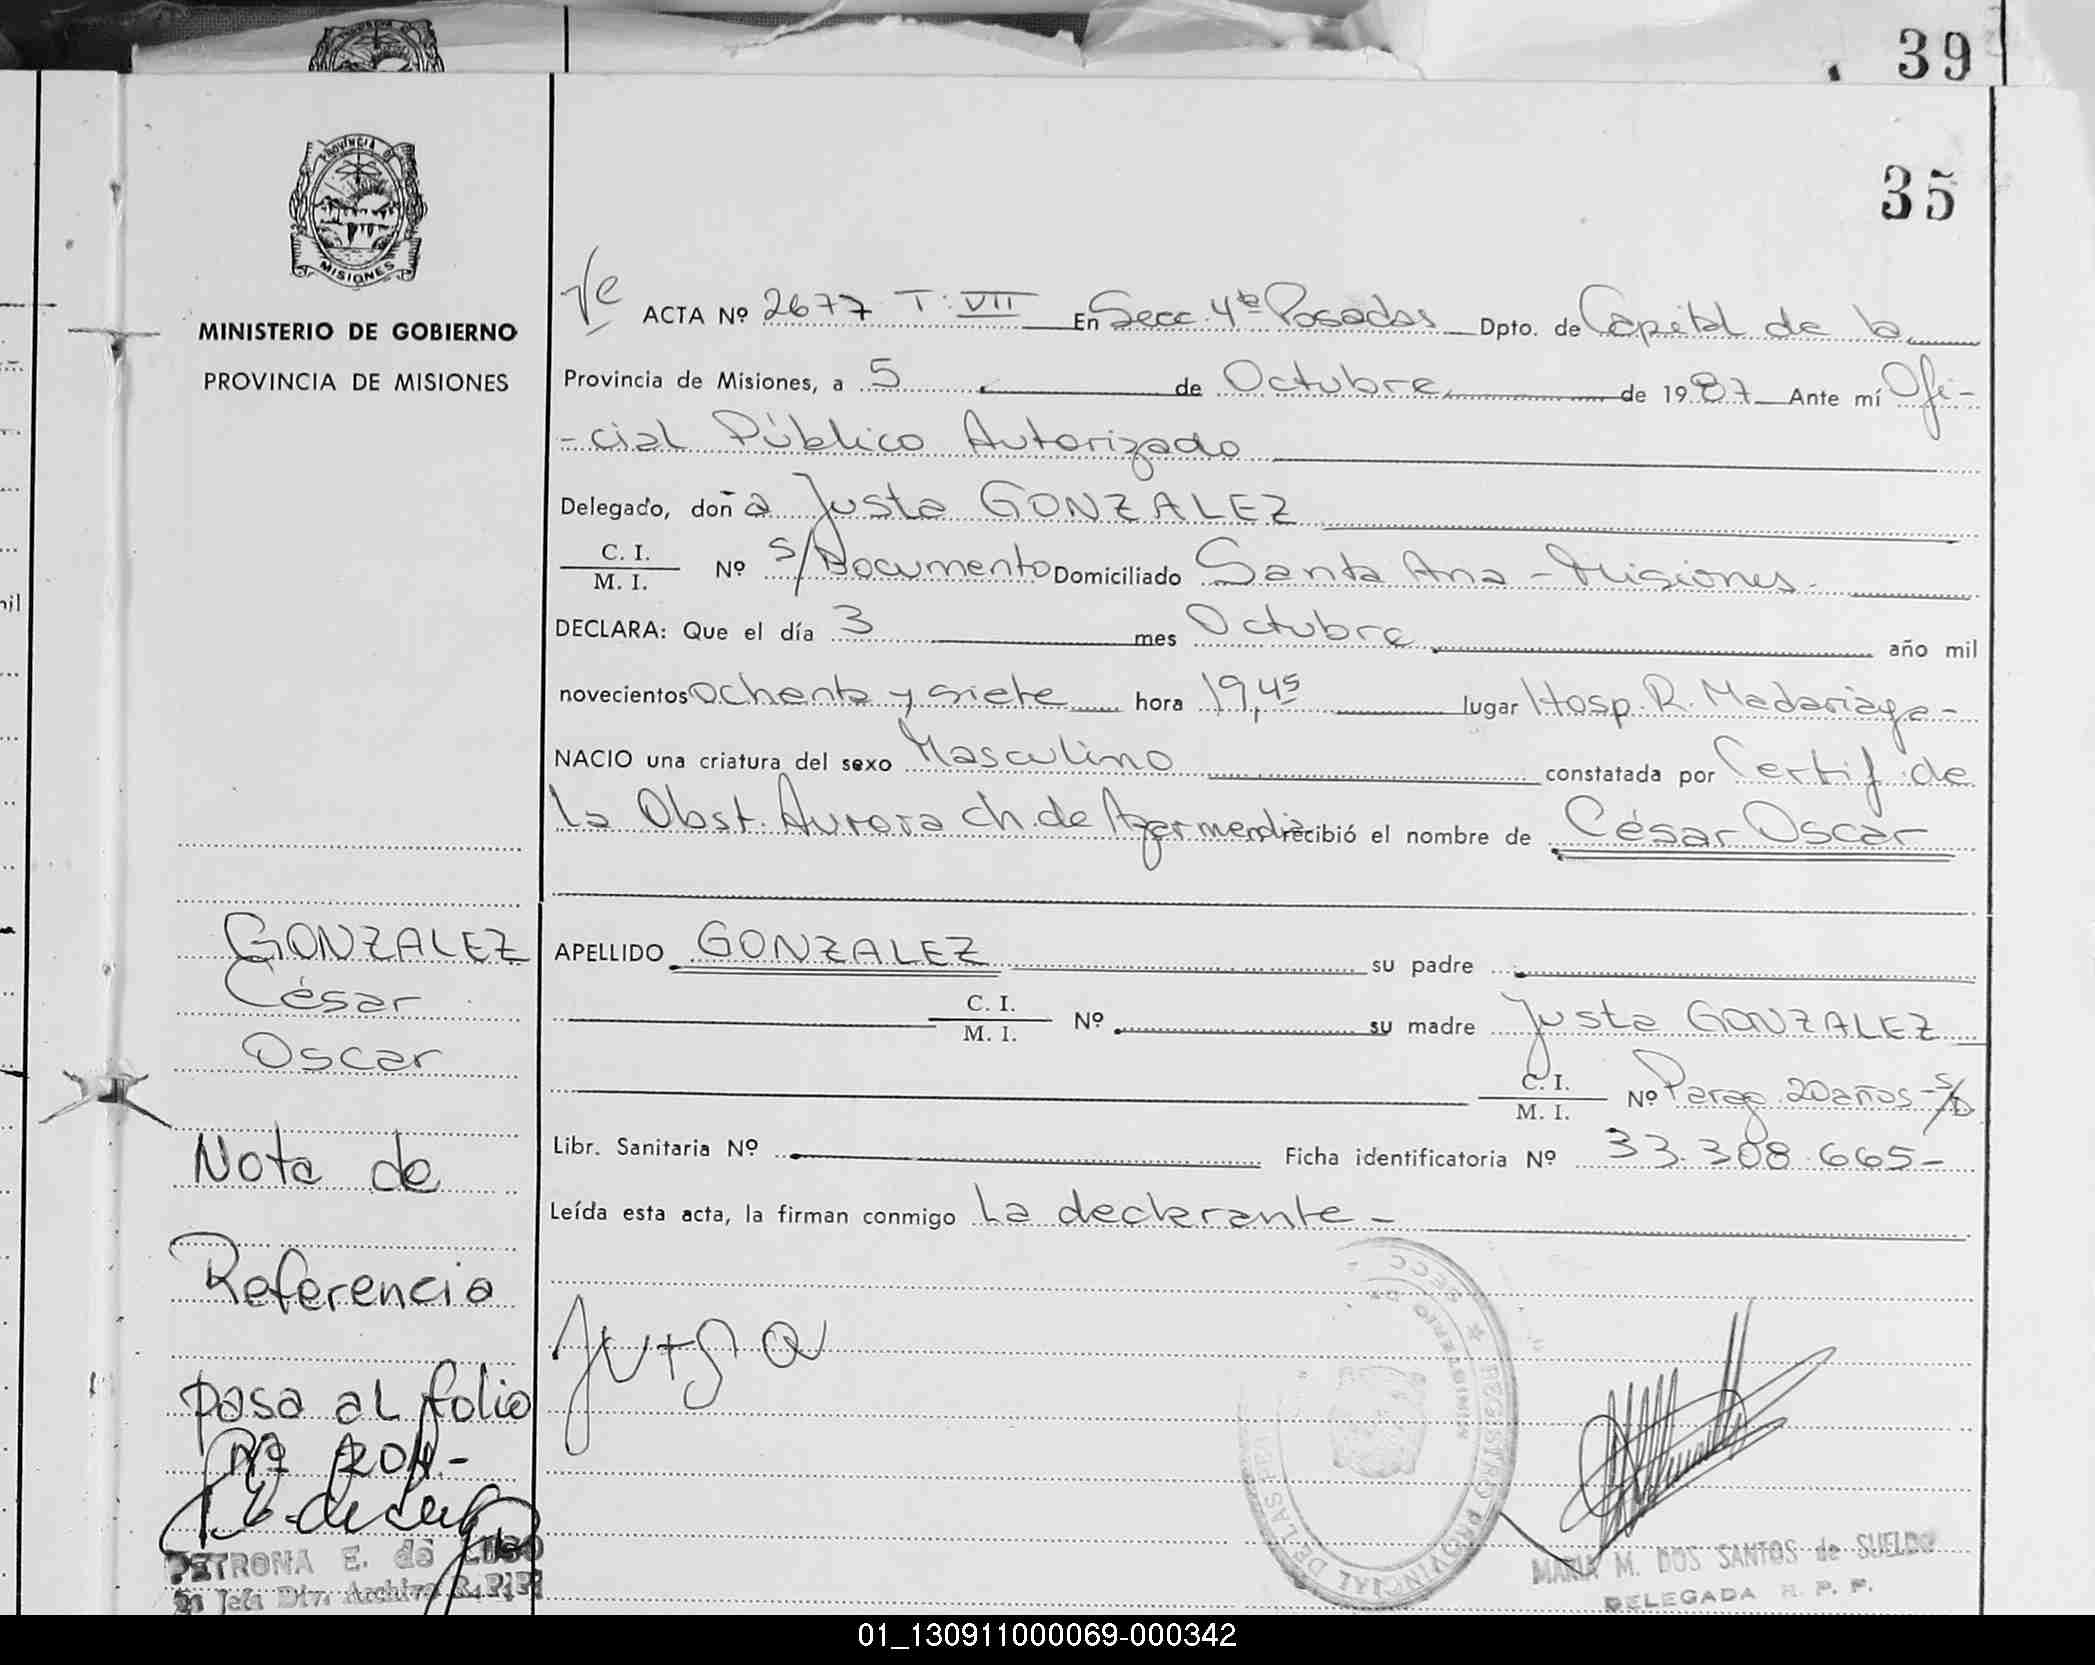 39
35
PROVINCIA DE
MISIONES
MINISTERIO DE GOBIERNO
PROVINCIA DE MISIONES
ACTA Nº 2677 T: VII En Secc. 4ta Posadas Dpto. de Capital de la
Provincia de Misiones, a 5 de Octubre de 1987 Ante mí Ofi-
-cial Público Autorizado
Delegado, doña Justa GONZALEZ
C. I.
M. I. Nº S/Documento Domiciliado Santa Ana - Misiones.
DECLARA: Que el día 3 mes Octubre año mil
novecientos ochenta y siete hora 19,45 lugar Hosp. R. Madariaga-
NACIO una criatura del sexo Masculino constatada por Certif. de
la Obst. Aurora Ch. de recibió el nombre de César Oscar
GONZALEZ
César
Oscar
APELLIDO GONZALEZ su padre
C. I.
M. I. Nº su madre Justa GONZALEZ
C. I.
M. I. Nº Parag. 20 años - S/D
Libr. Sanitaria Nº Ficha identificatoria Nº 33.308.665-
Leída esta acta, la firman conmigo la declarante -
Nota de
Referencia
pasa al folio
Nº 204-
PETRONA E. de LUGO
Jefe Div. Archivo R.P.P.
Justa
REGISTRO PROVINCIAL DE LAS
MINISTERIO DE
SECC
MARIA M. DOS SANTOS de SUELDO
DELEGADA R. P. P.
01_130911000069-000342